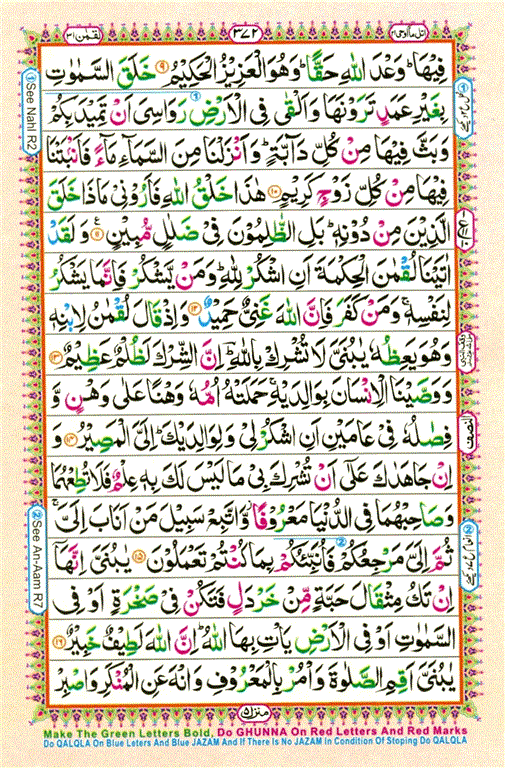 اتل مآاوحی ۲۱ ۳۷۲ لقمن ۳۱
فِيْهَا ؕ وَعْدَ اللّٰهِ حَقًّا ؕ وَهُوَ الْعَزِيْزُ الْحَكِيْمُ ۹ خَلَقَ السَّمٰوٰتِ
بِغَيْرِ عَمَدٍ تَرَوْنَهَا وَاَلْقٰى فِى الْاَرْضِ رَوَاسِىَ اَنْ تَمِيْدَ بِكُمْ
وَبَثَّ فِيْهَا مِنْ كُلِّ دَآبَّةٍ ؕ وَاَنْزَلْنَا مِنَ السَّمَآءِ مَآءً فَاَنْۢبَتْنَا
فِيْهَا مِنْ كُلِّ زَوْجٍ كَرِيْمٍ ۱۰ هٰذَا خَلْقُ اللّٰهِ فَاَرُوْنِىْ مَاذَا خَلَقَ
الَّذِيْنَ مِنْ دُوْنِهٖ ؕ بَلِ الظّٰلِمُوْنَ فِىْ ضَلٰلٍ مُّبِيْنٍ ۱۱ وَلَقَدْ
اٰتَيْنَا لُقْمٰنَ الْحِكْمَةَ اَنِ اشْكُرْ لِلّٰهِ ؕ وَمَنْ يَّشْكُرْ فَاِنَّمَا يَشْكُرُ
لِنَفْسِهٖ ۚ وَمَنْ كَفَرَ فَاِنَّ اللّٰهَ غَنِىٌّ حَمِيْدٌ ۱۲ وَاِذْ قَالَ لُقْمٰنُ لِابْنِهٖ
وَهُوَ يَعِظُهٗ يٰبُنَىَّ لَا تُشْرِكْ بِاللّٰهِ ؕ اِنَّ الشِّرْكَ لَظُلْمٌ عَظِيْمٌ ۱۳
وَوَصَّيْنَا الْاِنْسَانَ بِوَالِدَيْهِ ۚ حَمَلَتْهُ اُمُّهٗ وَهْنًا عَلٰى وَهْنٍ وَّ
فِصٰلُهٗ فِىْ عَامَيْنِ اَنِ اشْكُرْ لِىْ وَلِوَالِدَيْكَ ؕ اِلَىَّ الْمَصِيْرُ ۱۴ وَ
اِنْ جَاهَدٰكَ عَلٰٓى اَنْ تُشْرِكَ بِىْ مَا لَيْسَ لَكَ بِهٖ عِلْمٌ ۙ فَلَا تُطِعْهُمَا
وَصَاحِبْهُمَا فِى الدُّنْيَا مَعْرُوْفًا ؗ وَّاتَّبِعْ سَبِيْلَ مَنْ اَنَابَ اِلَىَّ ۚ
ثُمَّ اِلَىَّ مَرْجِعُكُمْ فَاُنَبِّئُكُمْ بِمَا كُنْتُمْ تَعْمَلُوْنَ ۱۵ يٰبُنَىَّ اِنَّهَاۤ
اِنْ تَكُ مِثْقَالَ حَبَّةٍ مِّنْ خَرْدَلٍ فَتَكُنْ فِىْ صَخْرَةٍ اَوْ فِى
السَّمٰوٰتِ اَوْ فِى الْاَرْضِ يَاْتِ بِهَا اللّٰهُ ؕ اِنَّ اللّٰهَ لَطِيْفٌ خَبِيْرٌ ۱۶
يٰبُنَىَّ اَقِمِ الصَّلٰوةَ وَاْمُرْ بِالْمَعْرُوْفِ وَانْهَ عَنِ الْمُنْكَرِ وَاصْبِرْ
منزل ۵
① See Nahl R2
② See An-Aam R7
النصف
Make The Green Letters Bold, Do GHUNNA On Red Letters And Red Marks
Do QALQLA On Blue Leters And Blue JAZAM And If There Is No JAZAM In Condition Of Stoping Do QALQLA